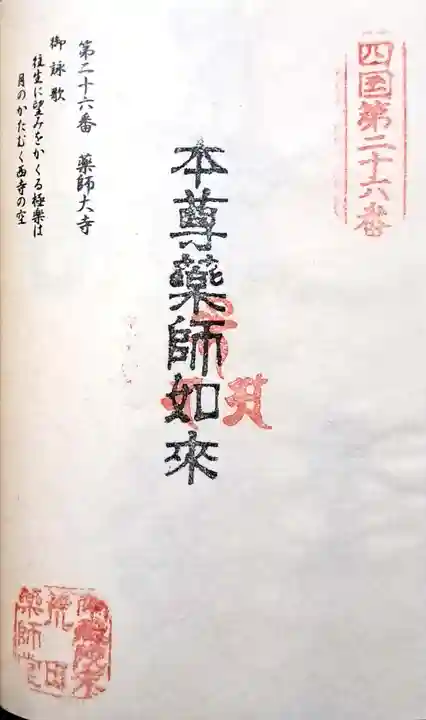 四国第二十六番
本尊薬師如来
第二十六番　薬師大寺
御詠歌
往生に望みをかくる極楽は
月のかたむく西寺の空
荒田
薬師堂